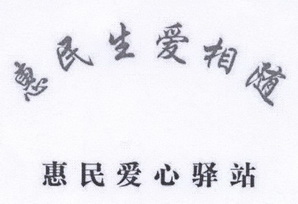 惠民生爱相随
惠民爱心驿站